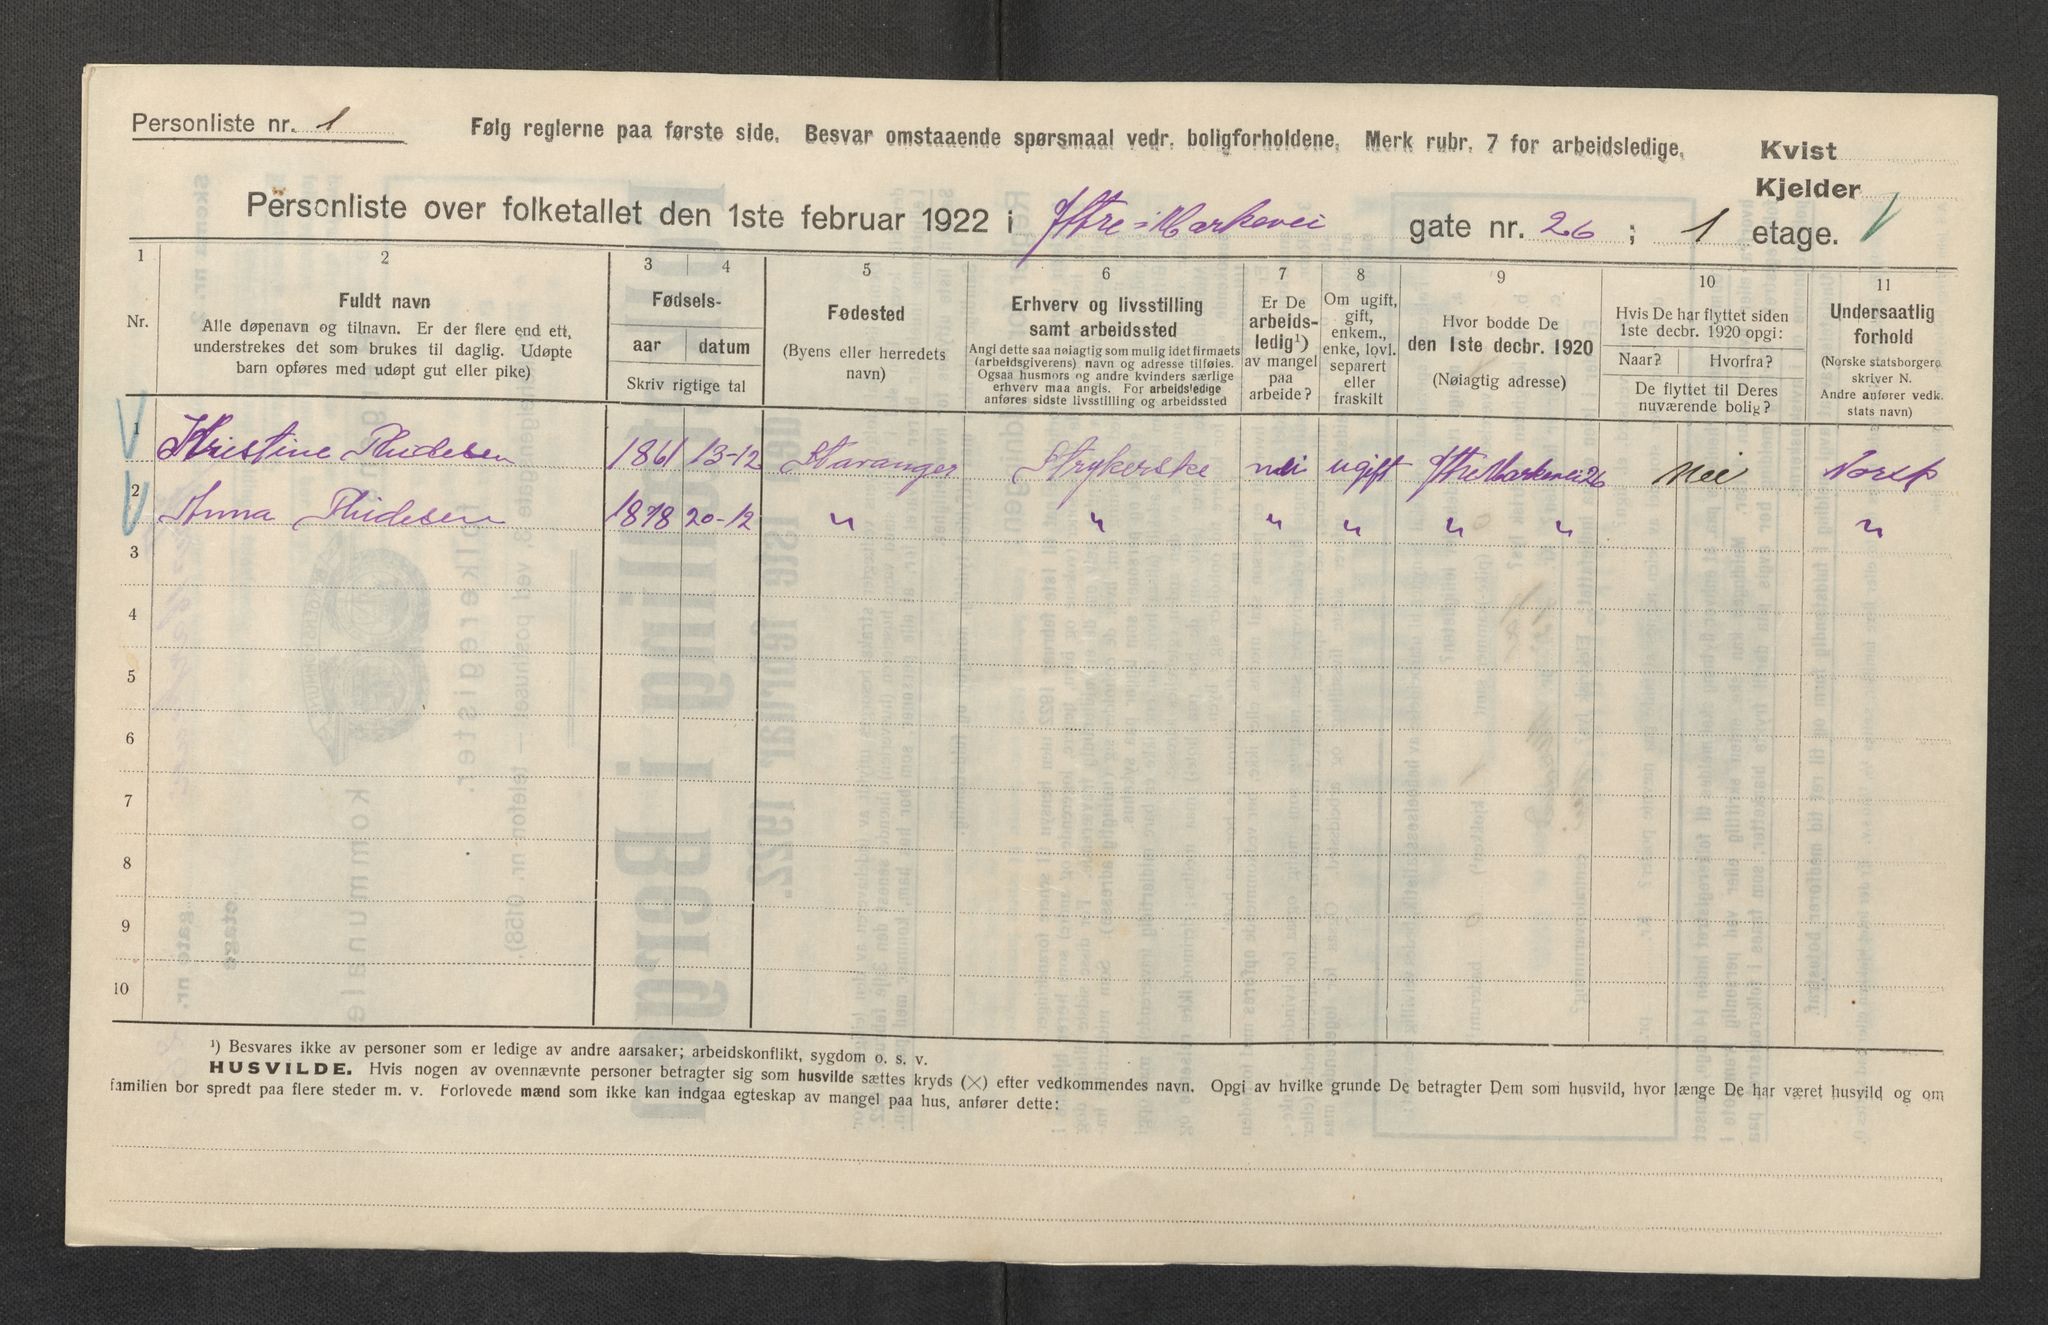 Personliste nr. 1
Følg reglerne paa første side. Besvar omstaaende spørsmaal vedr. boligforholdene. Merk rubr. 7 for arbeidsledige.
Kvist
Kjelder
Personliste over folketallet den 1ste februar 1922 i Ytre Markevei gate nr. 26 ; 1 etage.
1 2 3 4 5 6 7 8 9 10 11
Nr.
Fuldt navn
Alle døpenavn og tilnavn. Er der flere end ett,
understrekes det som brukes til daglig. Udøpte
barn opføres med udøpt gut eller pike)
Fødsels-
aar datum
Skriv rigtige tal
Fødested
(Byens eller herredets
navn)
Erhverv og livsstilling
samt arbeidssted
Angi dette saa nøiagtig som mulig idet firmaets
(arbeidsgiverens) navn og adresse tilføies.
Ogsaa husmors og andre kvinders særlige
erhverv maa angis. For arbeidsledige
anføres sidste livsstilling og arbeidssted
Er De
arbeids-
ledig¹)
av mangel
paa
arbeide?
Om ugift,
gift,
enkem.,
enke, lovl.
separert
eller
fraskilt
Hvor bodde De
den 1ste decbr. 1920
(Nøiagtig adresse)
Hvis De har flyttet siden
1ste decbr. 1920 opgi:
Naar? Hvorfra?
De flyttet til Deres
nuværende bolig?
Undersaatlig
forhold
(Norske statsborgere
skriver N.
Andre anfører vedk.
stats navn)
1 Kristine Thidesen 1861 13-12 Stavanger Strykerske nei ugift Ytre Markevei 26 Nei Norsk
2 Anna Thidesen 1878 20-12 " " " " " " "
3
4
5
6
7
8
9
10
¹) Besvares ikke av personer som er ledige av andre aarsaker; arbeidskonflikt, sygdom o. s. v.
HUSVILDE. Hvis nogen av ovennævnte personer betragter sig som husvilde sættes kryds (×) efter vedkommendes navn. Opgi av hvilke grunde De betragter Dem som husvild, hvor længe De har været husvild og om
familien bor spredt paa flere steder m. v. Forlovede mænd som ikke kan indgaa egteskap av mangel paa hus, anfører dette: